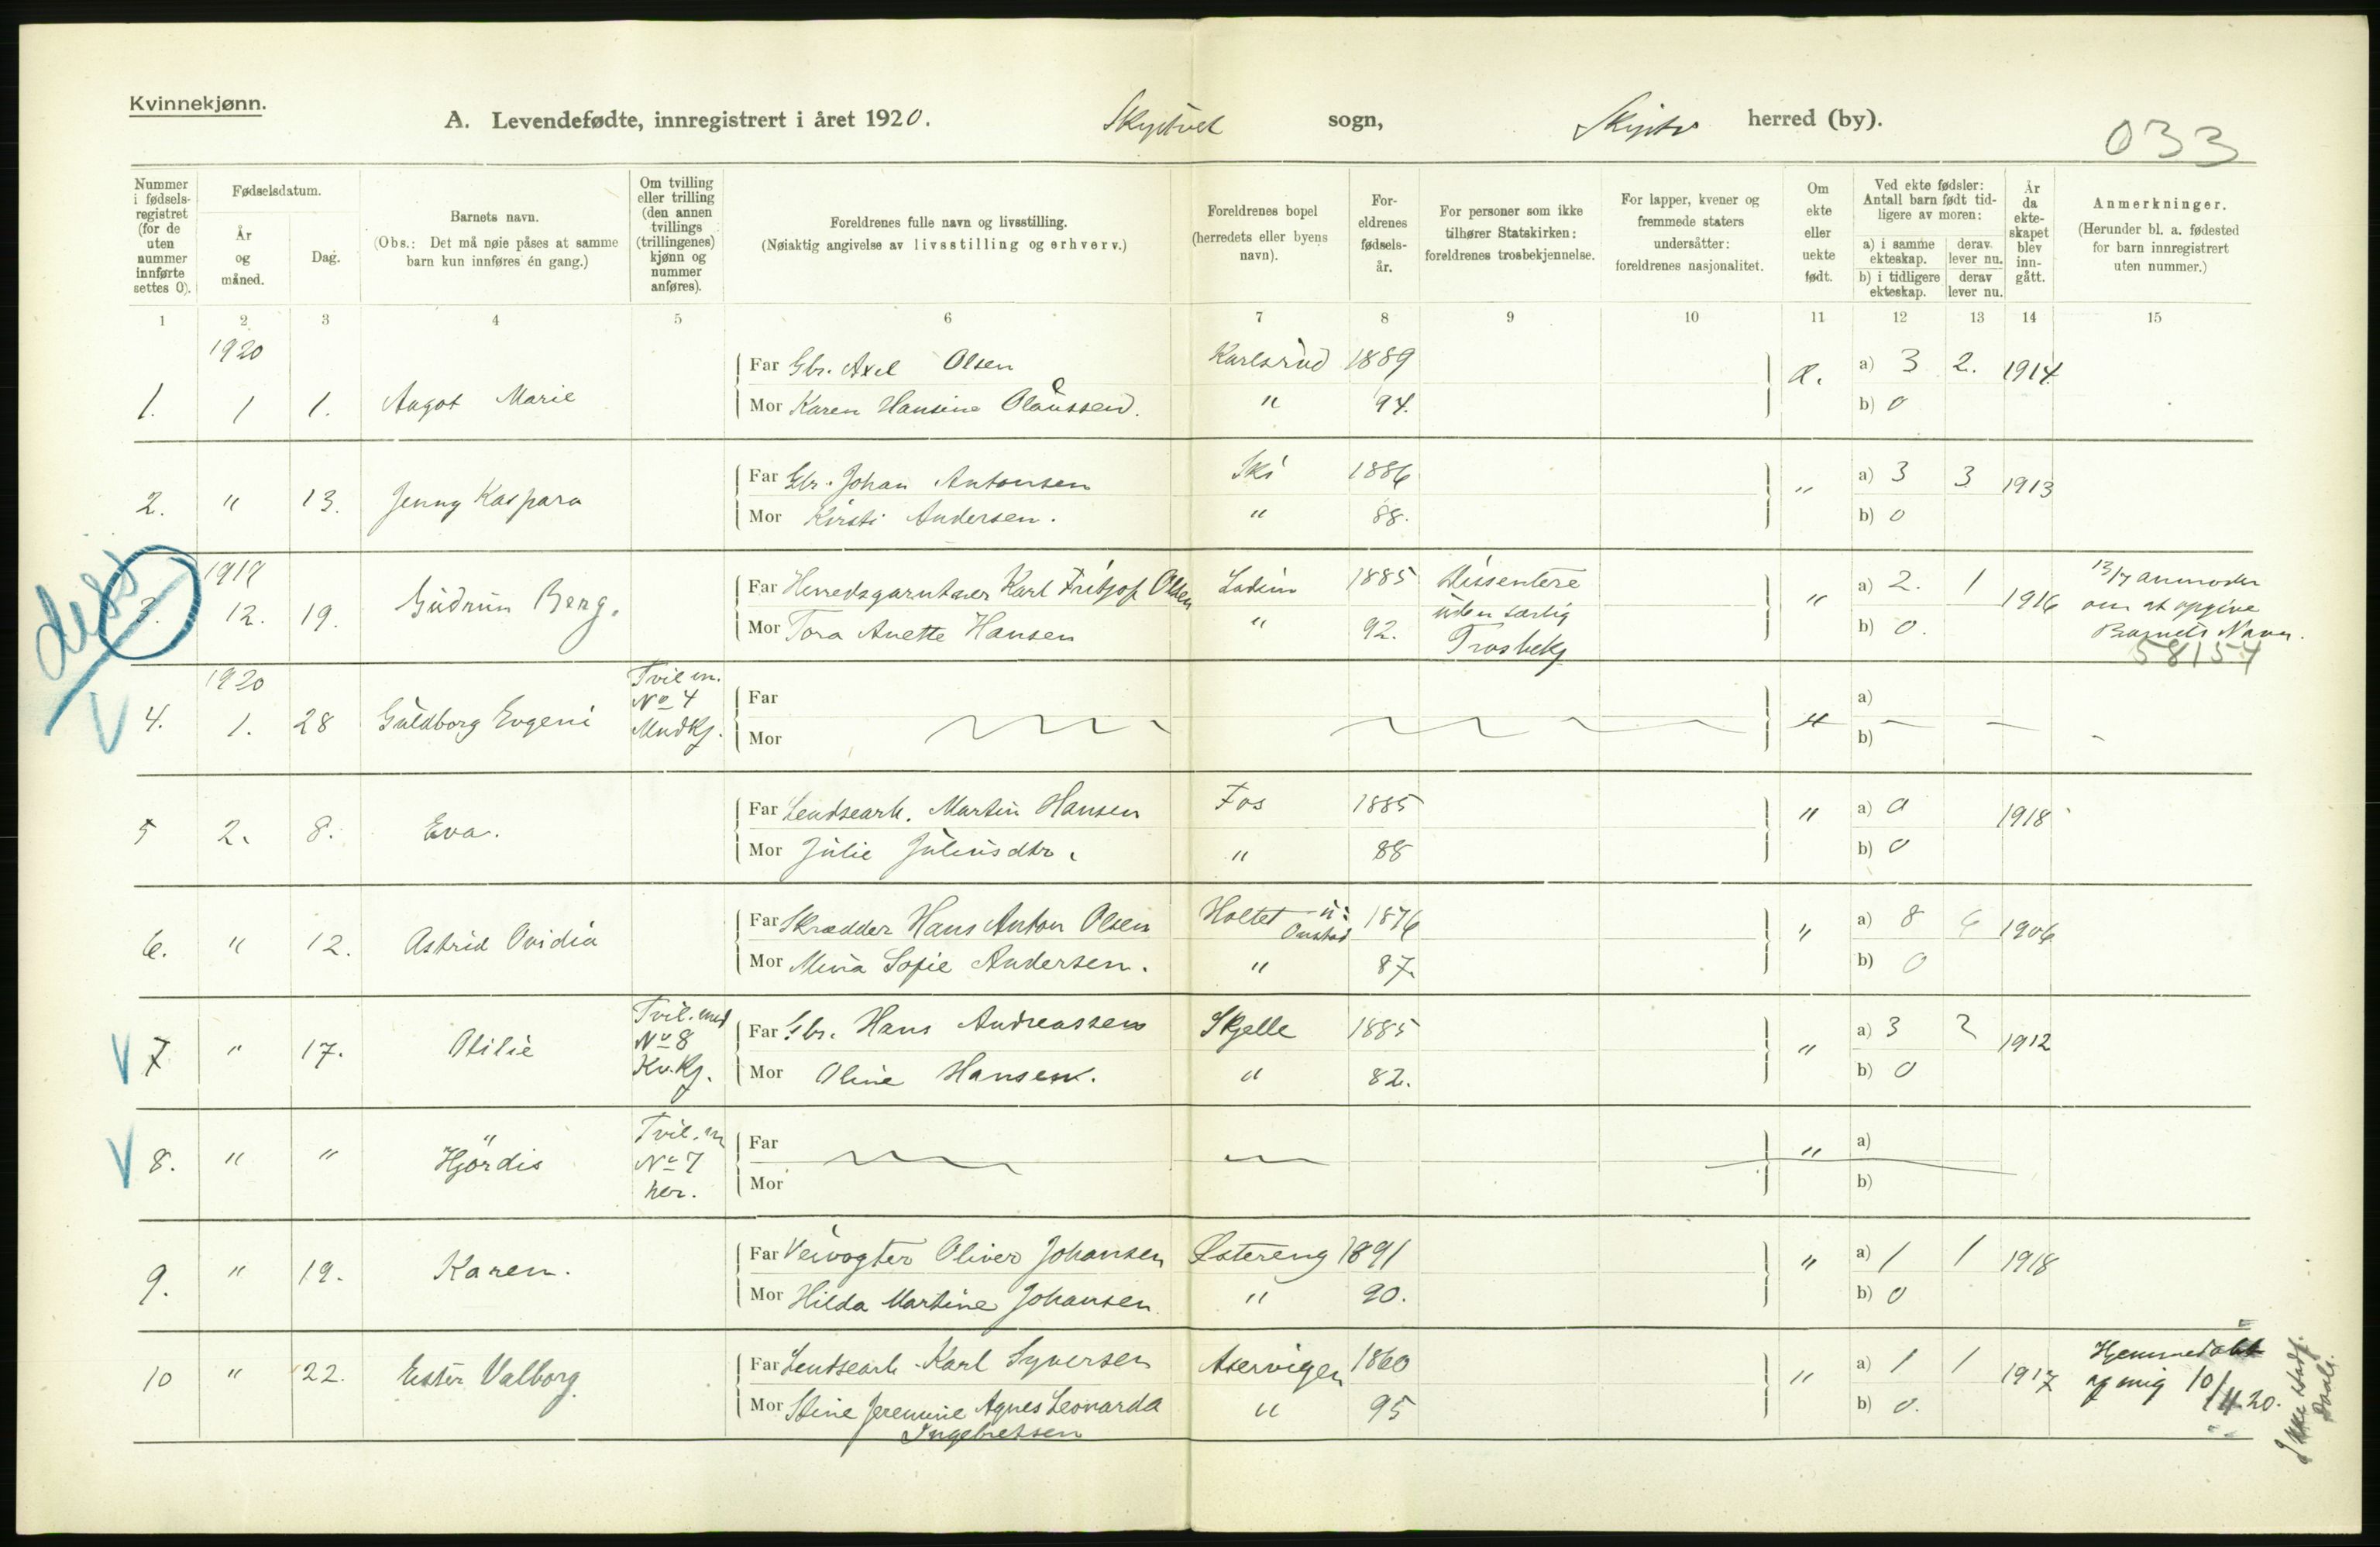 Kvinnekjønn.
A. Levendefødte, innregistrert i året 1920. Skiptvet sogn, Skiptv herred (by).
033
Nummer i fødsels-registret (for de uten nummer innførte settes 0).
Fødselsdatum.
År og måned.
Dag.
Barnets navn.
(Obs.: Det må nøie påses at samme barn kun innføres én gang.)
Om tvilling eller trilling (den annen tvillings (trillingenes) kjønn og nummer anføres).
Foreldrenes fulle navn og livsstilling.
(Nøiaktig angivelse av livsstilling og erhverv.)
Foreldrenes bopel (herredets eller byens navn).
For-eldrenes fødsels-år.
For personer som ikke tilhører Statskirken: foreldrenes trosbekjennelse.
For lapper, kvener og fremmede staters undersåtter: foreldrenes nasjonalitet.
Om ekte eller uekte født.
Ved ekte fødsler: Antall barn født tid-ligere av moren:
a) i samme ekteskap. derav lever nu.
b) i tidligere ekteskap. derav lever nu.
År da ekte-skapet blev inn-gått.
Anmerkninger.
(Herunder bl. a. fødested for barn innregistrert uten nummer.)
1 2 3 4 5 6 7 8 9 10 11 12 13 14 15
1920
Far Gbr. Axel Olsen Karlsrud 1889 a) 3 2. 1914
1. 1 1. Aagot Marie
Mor Karen Hansine Olaussen. " 94. b) 0
Far Gbr. Johan Antonsen Ski 1886 " a) 3 3 1913
2. " 13. Jenny Kaspara
Mor Kirsti Andersen. " 88. b) 0
1919
Far Herredsgartner Karl Fritjof Olsen 1885 Dissentere " a) 2. 1 1916 13/7 anmoder
3. 12. 19. Gudrun Berg. uden særlig om at opgive
Mor Tora Anette Hansen " 92. Trosbekj b) 0. Barnets Navn.
58154
1920 Tvil m.
V 4. 1. 28 Guldborg Evgeni No 4 Far " a)
Mndkj. Mor b)
Far Lendsearb. Martin Hansen Fos 1885 " a) 0 1918
5 2. 8. Eva.
Mor Julie Juliusdtr. " 88 b) 0
Far Skrædder Hans Anton Olsen Holtet u: Onstad 1876 " a) 8 6 1906
6. " 12. Astrid Ovidia
Mor Mina Sofie Andersen. " 87. b) 0
Tvil. med
Far Gbr. Hans Andreassen Skjelle 1885 " a) 3 2 1912
V 7 " 17. Otilie No 8
Kv.Kj. Mor Oline Hansen. " 82. b) 0
Tvil. m
V 8. " " Hjördis No 7 Far " a)
her. Mor b)
Far Veivogter Oliver Johansen Østereng 1891 " a) 1 1 1918
9. " 19. Karen.
Mor Hilda Martine Johansen " 90. b) 0
Far Lendsearb Karl Syversen Aservigen 1860 " a) 1 1 1917 Hjemmedøbt
10 " 22. Ester Valborg af mig 10/4.20.
Mor Stine Jeremine Agnes Leonarda " 95 b) 0.
Ingebretsen
Ikke Stadf. Daab.